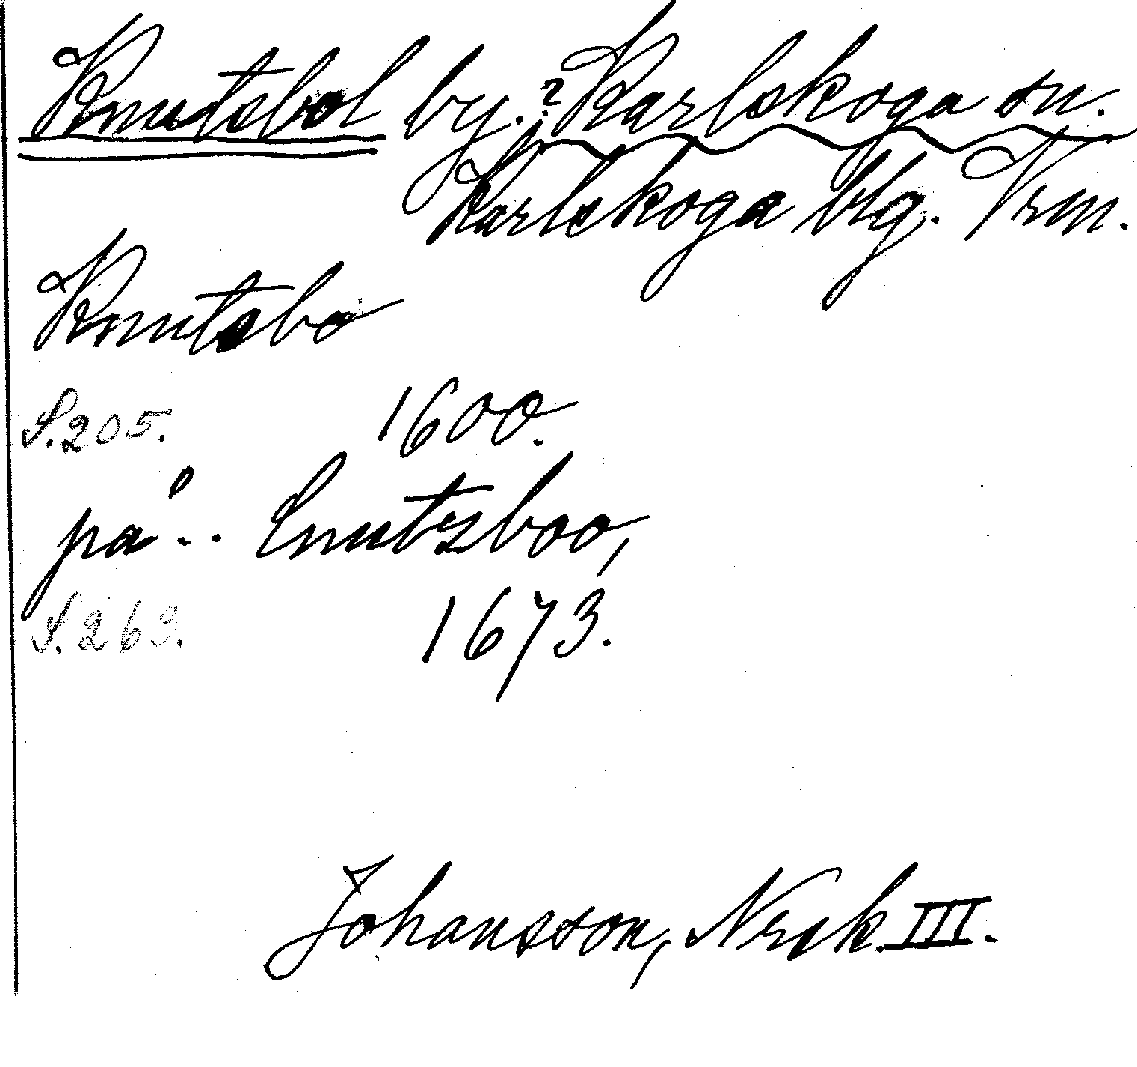 Knutsbol by.? Karlskoga sn.
Karlskoga blg. Vrm.
Knutsbo
S. 205. 1600.
på... Cnutzboo,
S. 263. 1673.
Johansson, Nrik III.